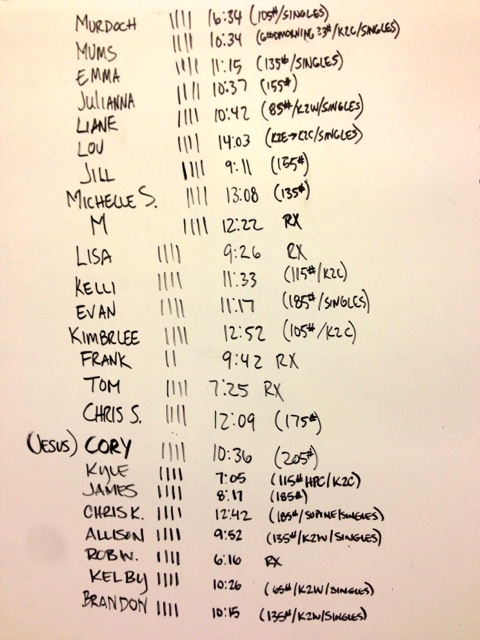 MURDOCH |||| 16:34 (105#/SINGLES)
MUMS |||| 10:34 (GOODMORNING 33#/K2C/SINGLES)
EMMA |||| 11:15 (135#/SINGLES)
JULIANNA |||| 10:37 (155#)
LIANE |||| 10:42 (85#/K2W/SINGLES)
LOU |||| 14:03 (K2E→K2C/SINGLES)
JILL |||| 9:11 (155#)
MICHELLE S. |||| 13:08 (135#)
M |||| 12:22 RX
LISA |||| 9:26 RX
KELLI |||| 11:33 (115#/K2C)
EVAN |||| 11:17 (185#/SINGLES)
KIMBRLEE |||| 12:52 (105#/K2C)
FRANK || 9:42 RX
TOM |||| 7:25 RX
CHRIS S. |||| 12:09 (175#)
(JESUS) CORY |||| 10:36 (205#)
KYLE |||| 7:05 (115# HPC/K2C)
JAMES |||| 8:17 (185#)
CHRIS K. |||| 12:42 (185#/SUPINE/SINGLES)
ALLISON |||| 9:52 (135#/K2W/SINGLES)
ROB W. |||| 6:16 RX
KELBY |||| 10:26 (65#/K2W/SINGLES)
BRANDON |||| 10:15 (135#/K2W/SINGLES)